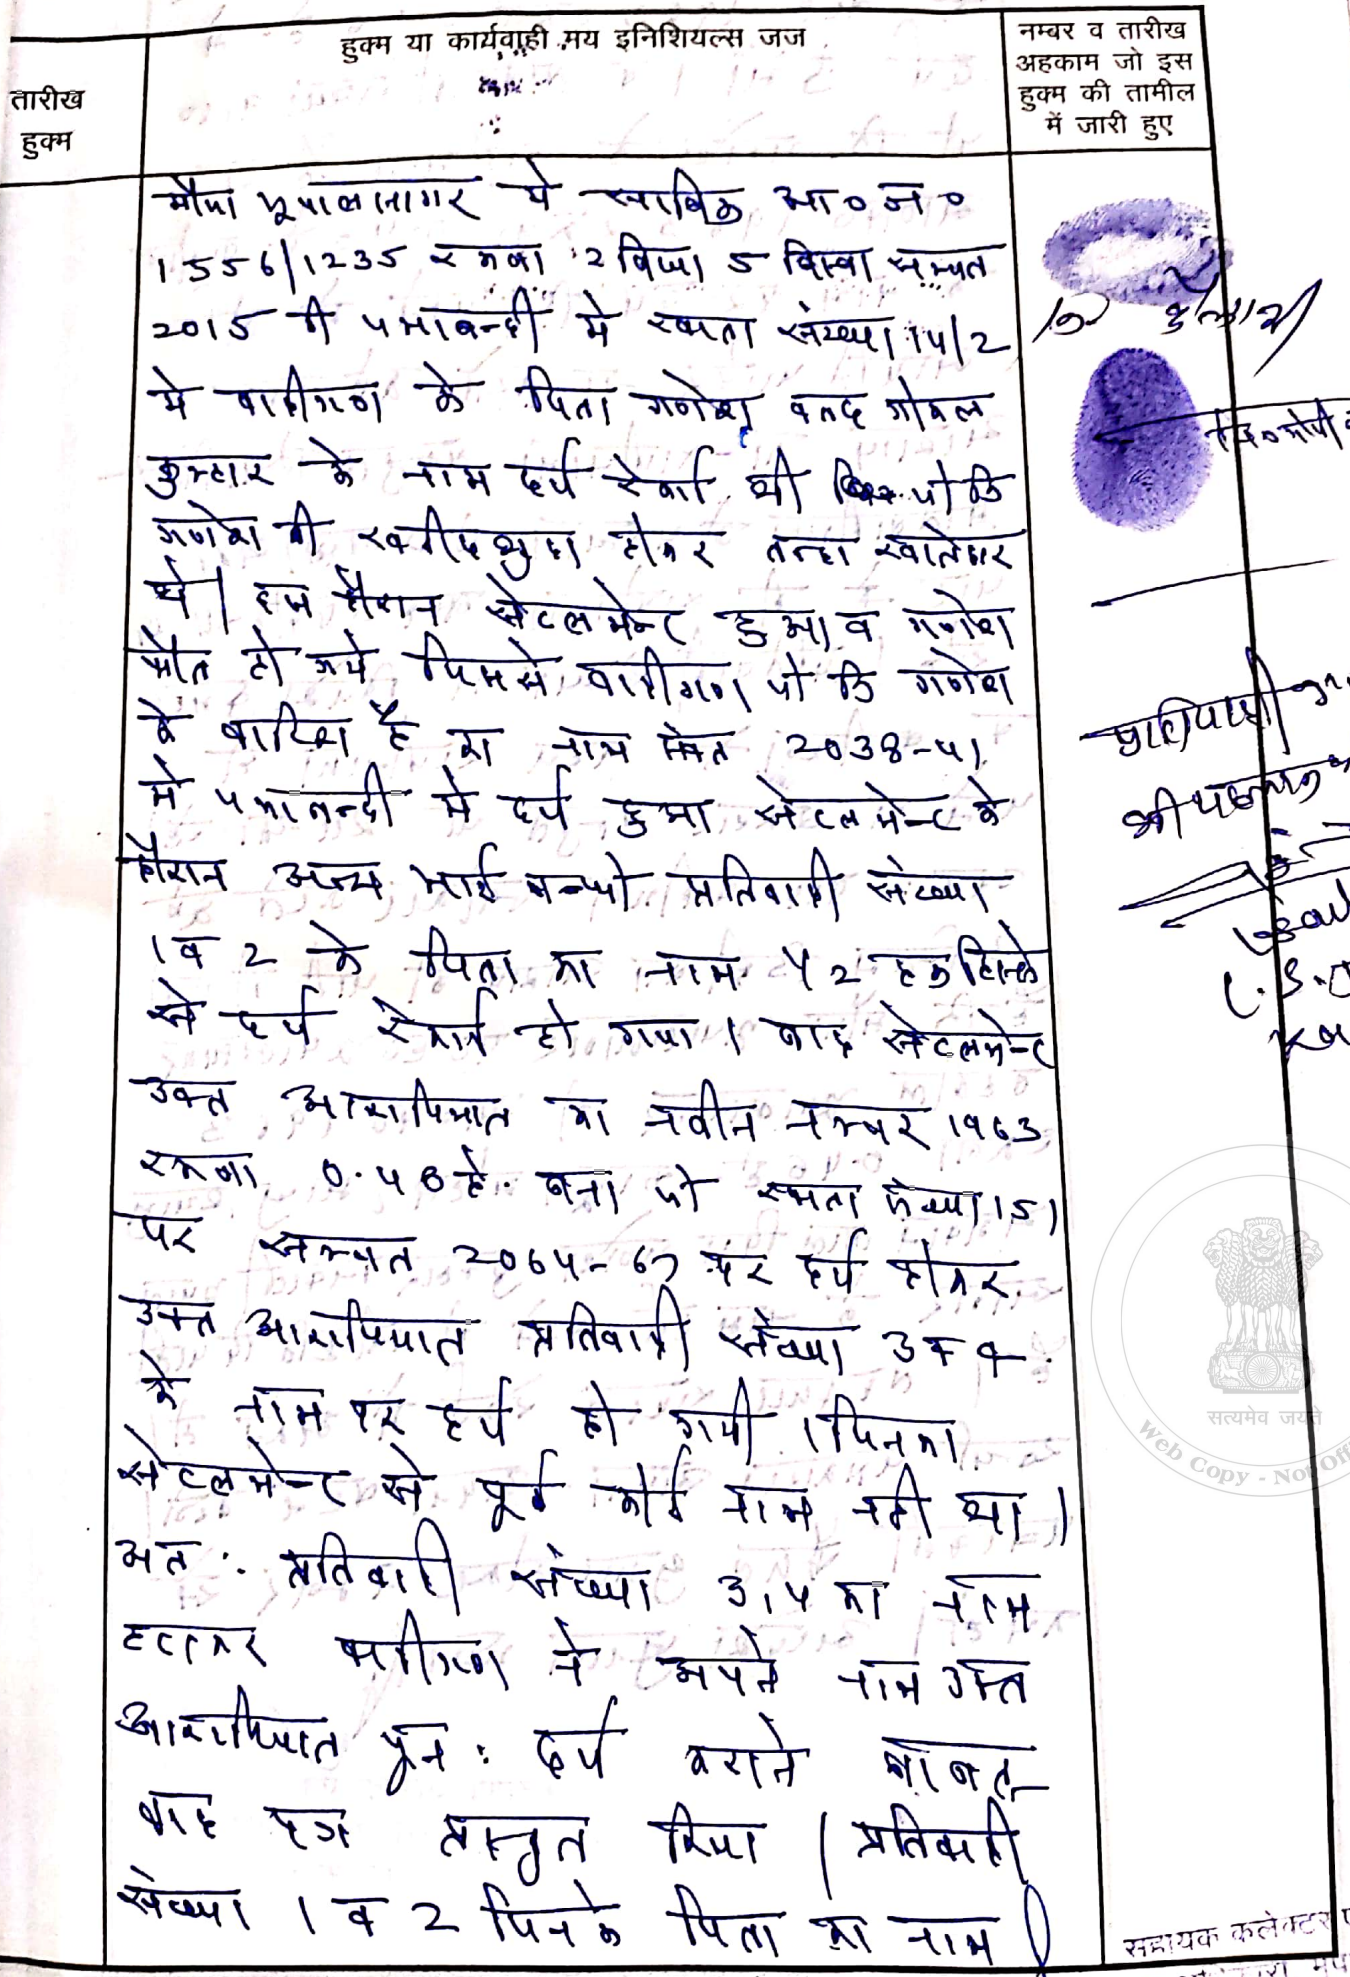 हुक्म या कार्यवाही मय इनिशियल्स जज
नम्बर व तारीख
अहकाम जो इस
हुक्म की तामील
में जारी हुए
तारीख
हुक्म
मौजा भूपालनागर मे साबिक आ० न०
1556/1235 रकबा 2 बिघा 5 बिस्वा सम्वत
2015 की जमाबन्दी मे खाता संख्या 14/2
मे वादीगण के पिता गणेश वल्द गोकल
कुम्हार के नाम दर्ज रेकार्ड थी जो कि
गणेश की खरीदशुदा होकर तन्हा खातेदार
थे। इस दौरान सेटलमेन्ट हुआ व गणेश
फौत हो गये जिससे वादीगण जो कि गणेश
के वारिश है का नाम 2038-41
मे जमाबन्दी मे दर्ज हुआ सेटलमेन्ट के
दौरान अन्य भाई बन्धो प्रतिवादी संख्या
1 व 2 के पिता का नाम 1/2 हक हिस्से
से दर्ज रेकार्ड हो गया। बाद सेटलमेन्ट
उक्त आराजियात का नवीन नम्बर 1963
रकबा 0.48 हे. बना जो खाता संख्या 151
पर सम्वत 2064-67 पर दर्ज होकर
उक्त आराजियात प्रतिवादी संख्या 3 व 4
के नाम पर दर्ज हो गयी। जिनका
सेटलमेन्ट से पूर्व कोई नाम नही था।
अत: प्रतिवादी संख्या 3,4 का नाम
हटाकर वादीगण ने अपने नाम उक्त
आराजियात पुन: दर्ज कराने बाबत
वाद पत्र प्रस्तुत किया। प्रतिवादी
संख्या 1 व 2 जिनके पिता का नाम
सत्यमेव जयते
Web Copy - Not Off
सहायक कलेक्टर